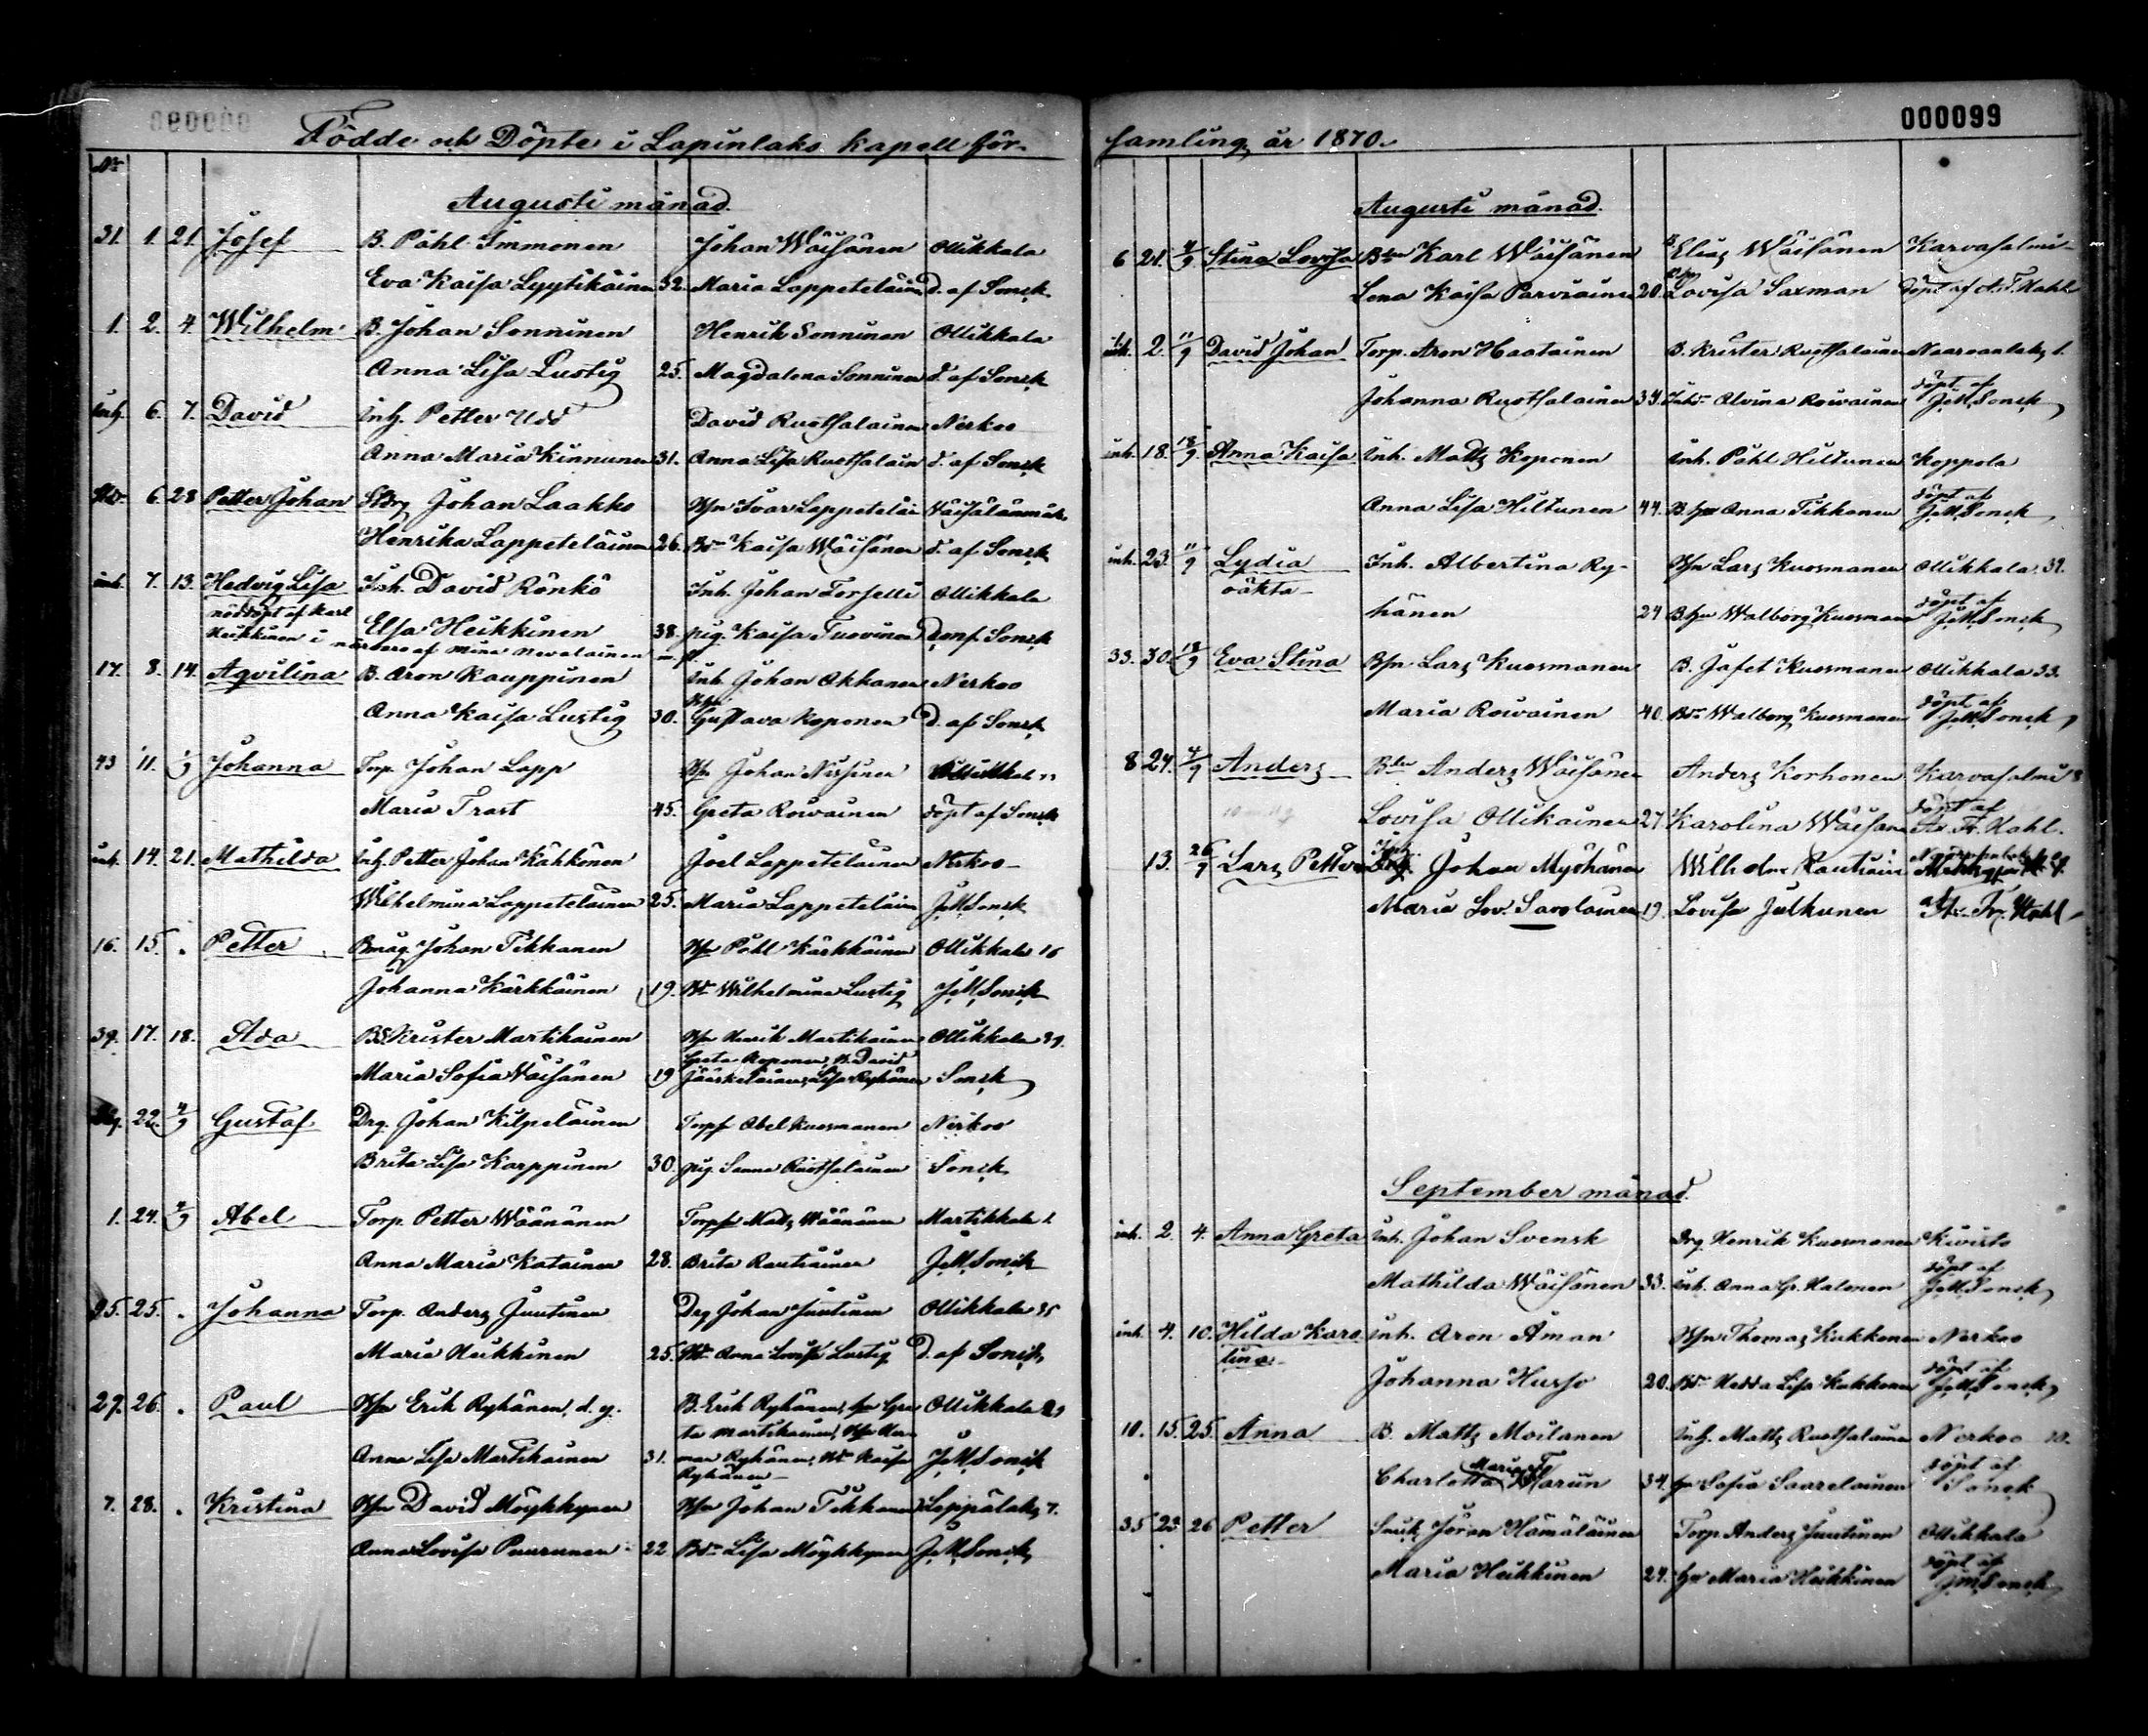 Födde och Döpte i Lapinlaks kapell för-
No
Augusti månad.
31. 1. 21. Josef B. Påhl Immonen Johan Wäisänen Ollikkala
Eva Kaisa Lyytikäinen 32. Maria Lappeteläinen D. af Sonck
1. 2. 4. Wilhelm B. Johan Sonninen Henrik Sonninen Ollikkala
Anna Lisa Lustig 25. Magdalena Sonninen d. af Sonck
inh. 6. 7. David inh. Petter Udd David Ruotsalainen Nerkoo
Anna Maria Kinnunen 31. Anna Lisa Ruotsalain d. af Sonck
6. 28 Petter Johan Johan Laakko Ivar Lappeteläi Väisälänmäki
Henrika Lappeteläinen 26. Kaisa Wäisänen d. af Sonck
inh. 7. 13. Hedvig Lisa Inh. David Rönkö Inh. Johan Forselli Ollikkala
nöddöpt af Karl
Heikkinen i närvaro af Mina Nevalainen
Elsa Heikkinen 38. pig. Kaisa Tuovinen D. af Sonck
17. 8. 14. Aqvilina B. Aron Kauppinen inh. Johan Okkonen Nerkoo
Anna Kaisa Lustig 30. Gustava Koponen D. af Sonck
43 11. Johanna Torp. Johan Lapp Johan Nissinen
Maria Trast 45. Greta Roivainen döpt af Sonck
inh. 14. 21. Mathilda inh. Petter Johan Kähkönen Joel Lappeteläinen Nerkoo
Wilhelmina Lappeteläinen 25. Maria Lappeteläin J.M. Sonck
16. 15. . Petter Bmåg Johan Tikkanen Påhl Kärkkäinen Ollikkala 16
Johanna Kärkkäinen 19. Wilhelmina Lustig J.M. Sonck
39. 17. 18. Ada BS Krister Martikainen Henrik Martikainen Ollikkala 39.
Greta Koponen, B. David
Maria Sofia Väisänen 19 Jääskeläinen, Lisa Ryhänen Sonck
22. 4/9 Gustaf Drg. Johan Kilpeläinen Abel Kuosmanen Nerkoo
Brita Lisa Karppinen 30. pig. Sanna Ruotsalainen Sonck
1. 24. 4/9 Abel Torp. Petter Wäänänen Matts Wäänänen Martikkala 1.
Anna Maria Katainen 28. Brita Rautiainen J.M. Sonck
35. 25. . Johanna Torp. Anders Juutinen Drg Johan Juutinen Ollikkala 35
Maria Heikkinen 25. Anna Lovisa Lustig D. af Sonck
29. 26. . Paul Erik Ryhänen, d. y. B. Erik Ryhänen, Gre Ollikkala 29
ta Martikainen, Her
Anna Lisa Martikainen 31. man Ryhänen, Kaisa J.M. Sonck
Ryhänen
7. 28. . Kristina David Möykkynen Johan Tikkanen Leppälaks 7.
Anna Lovisa Puurunen 22 Lisa Möykkynen J.M. Sonck
000099
samling år 1870.
Augusti månad.
6 21. 4/9 Stina Lovisa Karl Wäisänen Elias Wäisänen Karvasalmi
Lena Kaisa Parviainen 20. Lovisa Saxman döpt af Kahl
inh. 2. 11/9 David Johan Torp. Aron Haatainen B. Krister Ruotsalainen
Johanna Ruotsalainen 34. Alvina Roivainen döpt af
J.M. Sonck
inh. 18. 18/9. Anna Kaisa inh. Matts Koponen inh. Påhl Hiltunen Koppola
Anna Lisa Hiltunen 44. Anna Tikkanen döpt af
J.M. Sonck
inh. 23. 11/9 Lydia Inh. Albertina Ry- Lars Kuosmanen Ollikkala
oäkta
hänen 24 Walborg Kuosmanen döpt af
J.M. Sonck
33. 30. 18/9 Eva Stina Lars Kuosmanen B. Jafet Kuosmanen Ollikkala 33.
Maria Roivainen 40. Walborg Kuosmanen döpt af
J.M. Sonck
8 24. 4/9 Anders Anders Wäisänen Anders Korhonen Karvasalmi 8
Lovisa Ollikainen 27. Karolina Wäisänen döpt af
Kahl.
13. Lars Petter Johan Myöhänen Wilhelm Rautiain
Maria Lov. Savolainen 19. Lovisa Julkunen
September månad.
inh. 2. 4. Anna Greta inh. Johan Svensk Drg. Henrik Kuosmanen Kivisto
Mathilda Wäisänen 33. inh. Anna Gr. Halonen döpt af
J.M. Sonck
inh. 4. 10. Hilda Karo inh. Aron Åman Thomas Kukkonen Nerkoo
lina
Johanna Husso 20. Hedda Lisa Kukkonen döpt af
J.M. Sonck
10. 15. 25. Anna B. Matts Moilanen inh. Matts Ruotsalainen Nerkoo 10.
Charlotta Maria 34. Sofia Saarelainen döpt af
Sonck
35 25 26 Petter Hämäläinen Torp. Anders Juutinen Ollikkala
Maria Heikkinen 24. Maria Heikkinen döpt af
J.M. Sonck